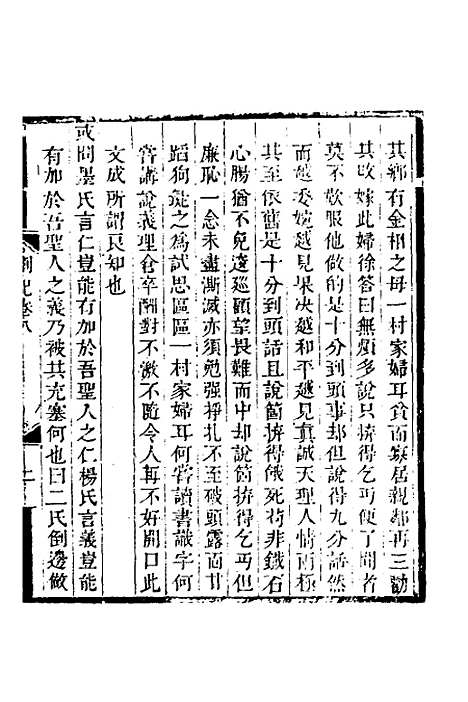 其鄉有金相之母一村家婦耳貧而寡居親鄰再三勸
其改嫁此婦徐答曰無煩多說只拚得乞丐便了聞者
莫不歎服他做的是十分到頭事却但說得九分話然
而越委婉越見果决越和平越見真誠天理人情而極
其至依舊是十分到頭話且說箇拚得餓死苟非鐵石
心腸猶不免逡巡顧望畏難而中却說箇拚得乞丐但
廉恥一念未盡澌滅亦須勉强掙扎不至破頭露面甘
蹈狗彘之爲試思區區一村家婦耳何嘗讀書識字何
嘗講說義理倉卒酬對不激不隨令人再不好開口此
文成所謂良知也
或問墨氏言仁豈能有加於吾聖人之仁楊氏言義豈能
有加於吾聖人之義乃被其充塞何也曰二氏倒邊做
劄記卷八